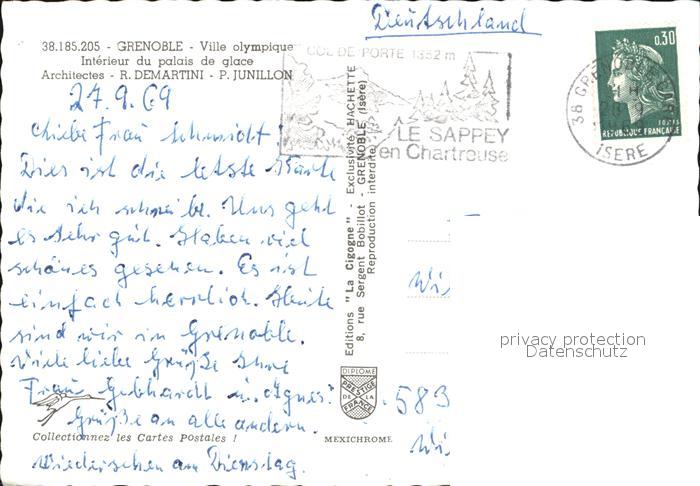 Deutschland
38.185.205 - GRENOBLE - Ville olympique
Intérieur du palais de glace
Architectes - R. DEMARTINI - P. JUNILLON
COL DE PORTE 1352 m
LE SAPPEY
en Chartreuse
0.30
REPUBLIQUE FRANÇAISE
38 GRENOBLE
ISERE
27.9.69
Liebe Frau Schmidt!
Dies ist die letzte Karte
die ich schreibe. Uns geht
es sehr gut. Haben viel
schönes gesehen. Es ist
einfach herrlich. Heute
sind wir in Grenoble.
Viele liebe Grüße Ihre
Frau Gebhardt u. Agnes.
Grüße an alle andern.
Wiedersehen am Dienstag.
Editions "La Cigogne" - Exclusivité HACHETTE
8, rue Sergent Bobillot - GRENOBLE (Isère)
Reproduction interdite
Wi
583
Wi
privacy protection
Datenschutz
DIPLOME
PRESTIGE
DE LA
FRANCE
Collectionnez les Cartes Postales !
MEXICHROME